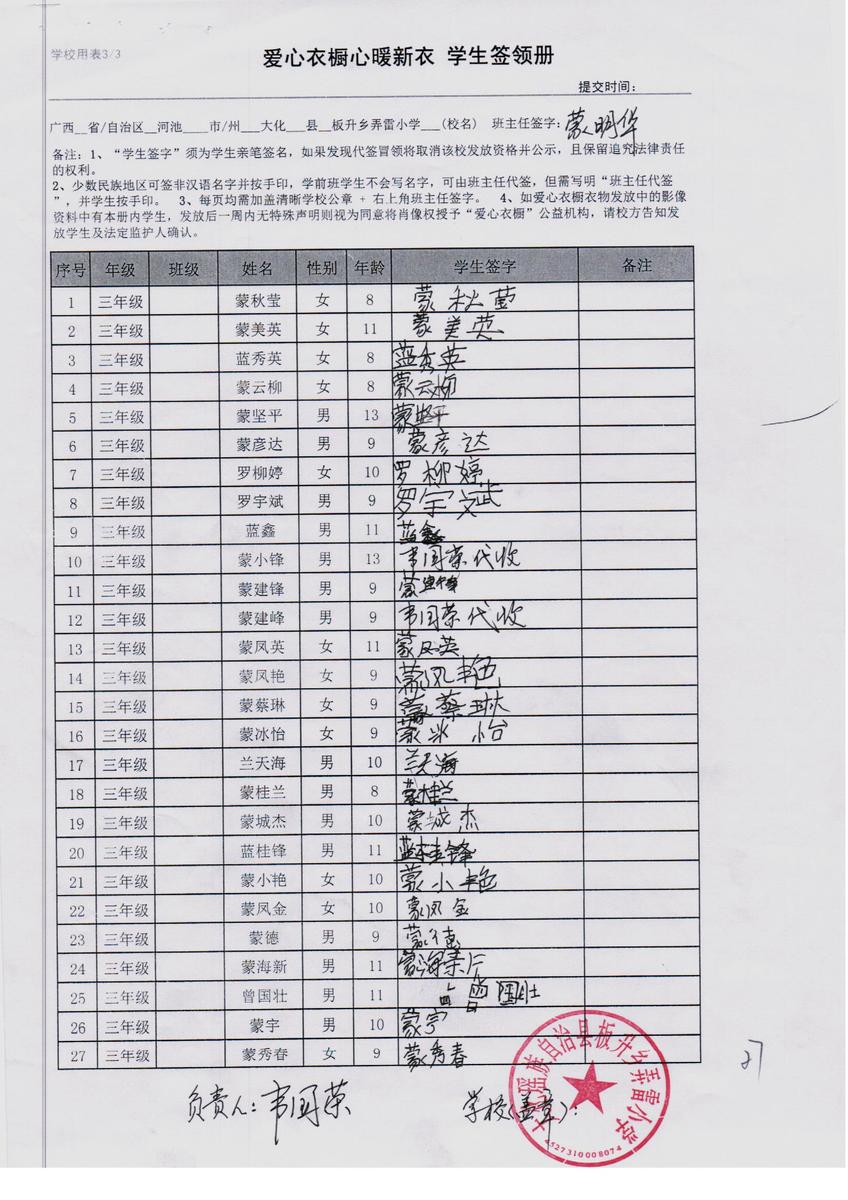 学校用表3/3
爱心衣橱心暖新衣 学生签领册
提交时间:
广西__省/自治区__河池____市/州___大化___县__板升乡弄雷小学___(校名) 班主任签字: 蒙明华
备注: 1、“学生签字”须为学生亲笔签名，如果发现代签冒领将取消该校发放资格并公示，且保留追究法律责任
的权利。
2、少数民族地区可签非汉语名字并按手印，学前班学生不会写名字，可由班主任代签，但需写明“班主任代签
”，并学生按手印。 3、每页均需加盖清晰学校公章 + 右上角班主任签字。 4、如爱心衣橱衣物发放中的影像
资料中有本册内学生，发放后一周内无特殊声明则视为同意将肖像权授予“爱心衣橱”公益机构，请校方告知发
放学生及法定监护人确认。
序号 年级 班级 姓名 性别 年龄 学生签字 备注
1 三年级 蒙秋莹 女 8 蒙秋莹
2 三年级 蒙美英 女 11 蒙美英
3 三年级 蓝秀英 女 8 蓝秀英
4 三年级 蒙云柳 女 8 蒙云柳
5 三年级 蒙坚平 男 13 蒙坚平
6 三年级 蒙彦达 男 9 蒙彦达
7 三年级 罗柳婷 女 10 罗柳婷
8 三年级 罗宇斌 男 9 罗宇斌
9 三年级 蓝鑫 男 11 蓝鑫
10 三年级 蒙小锋 男 13 韦国荣代收
11 三年级 蒙建锋 男 9 蒙建锋
12 三年级 蒙建峰 男 9 韦国荣代收
13 三年级 蒙凤英 女 11 蒙凤英
14 三年级 蒙凤艳 女 9 蒙凤艳
15 三年级 蒙蔡琳 女 9 蒙蔡琳
16 三年级 蒙冰怡 女 9 蒙冰怡
17 三年级 兰天海 男 10 兰天海
18 三年级 蒙桂兰 男 8 蒙桂兰
19 三年级 蒙城杰 男 10 蒙城杰
20 三年级 蓝桂锋 男 11 蓝桂锋
21 三年级 蒙小艳 女 10 蒙小艳
22 三年级 蒙凤金 女 10 蒙凤金
23 三年级 蒙德 男 9 蒙德
24 三年级 蒙海新 男 11 蒙海新
25 三年级 曾国壮 男 11 曾国壮
26 三年级 蒙宇 男 10 蒙宇
27 三年级 蒙秀春 女 9 蒙秀春
27
负责人: 韦国荣 学校(盖章):
大化瑶族自治县板升乡弄雷小学
4527310008074